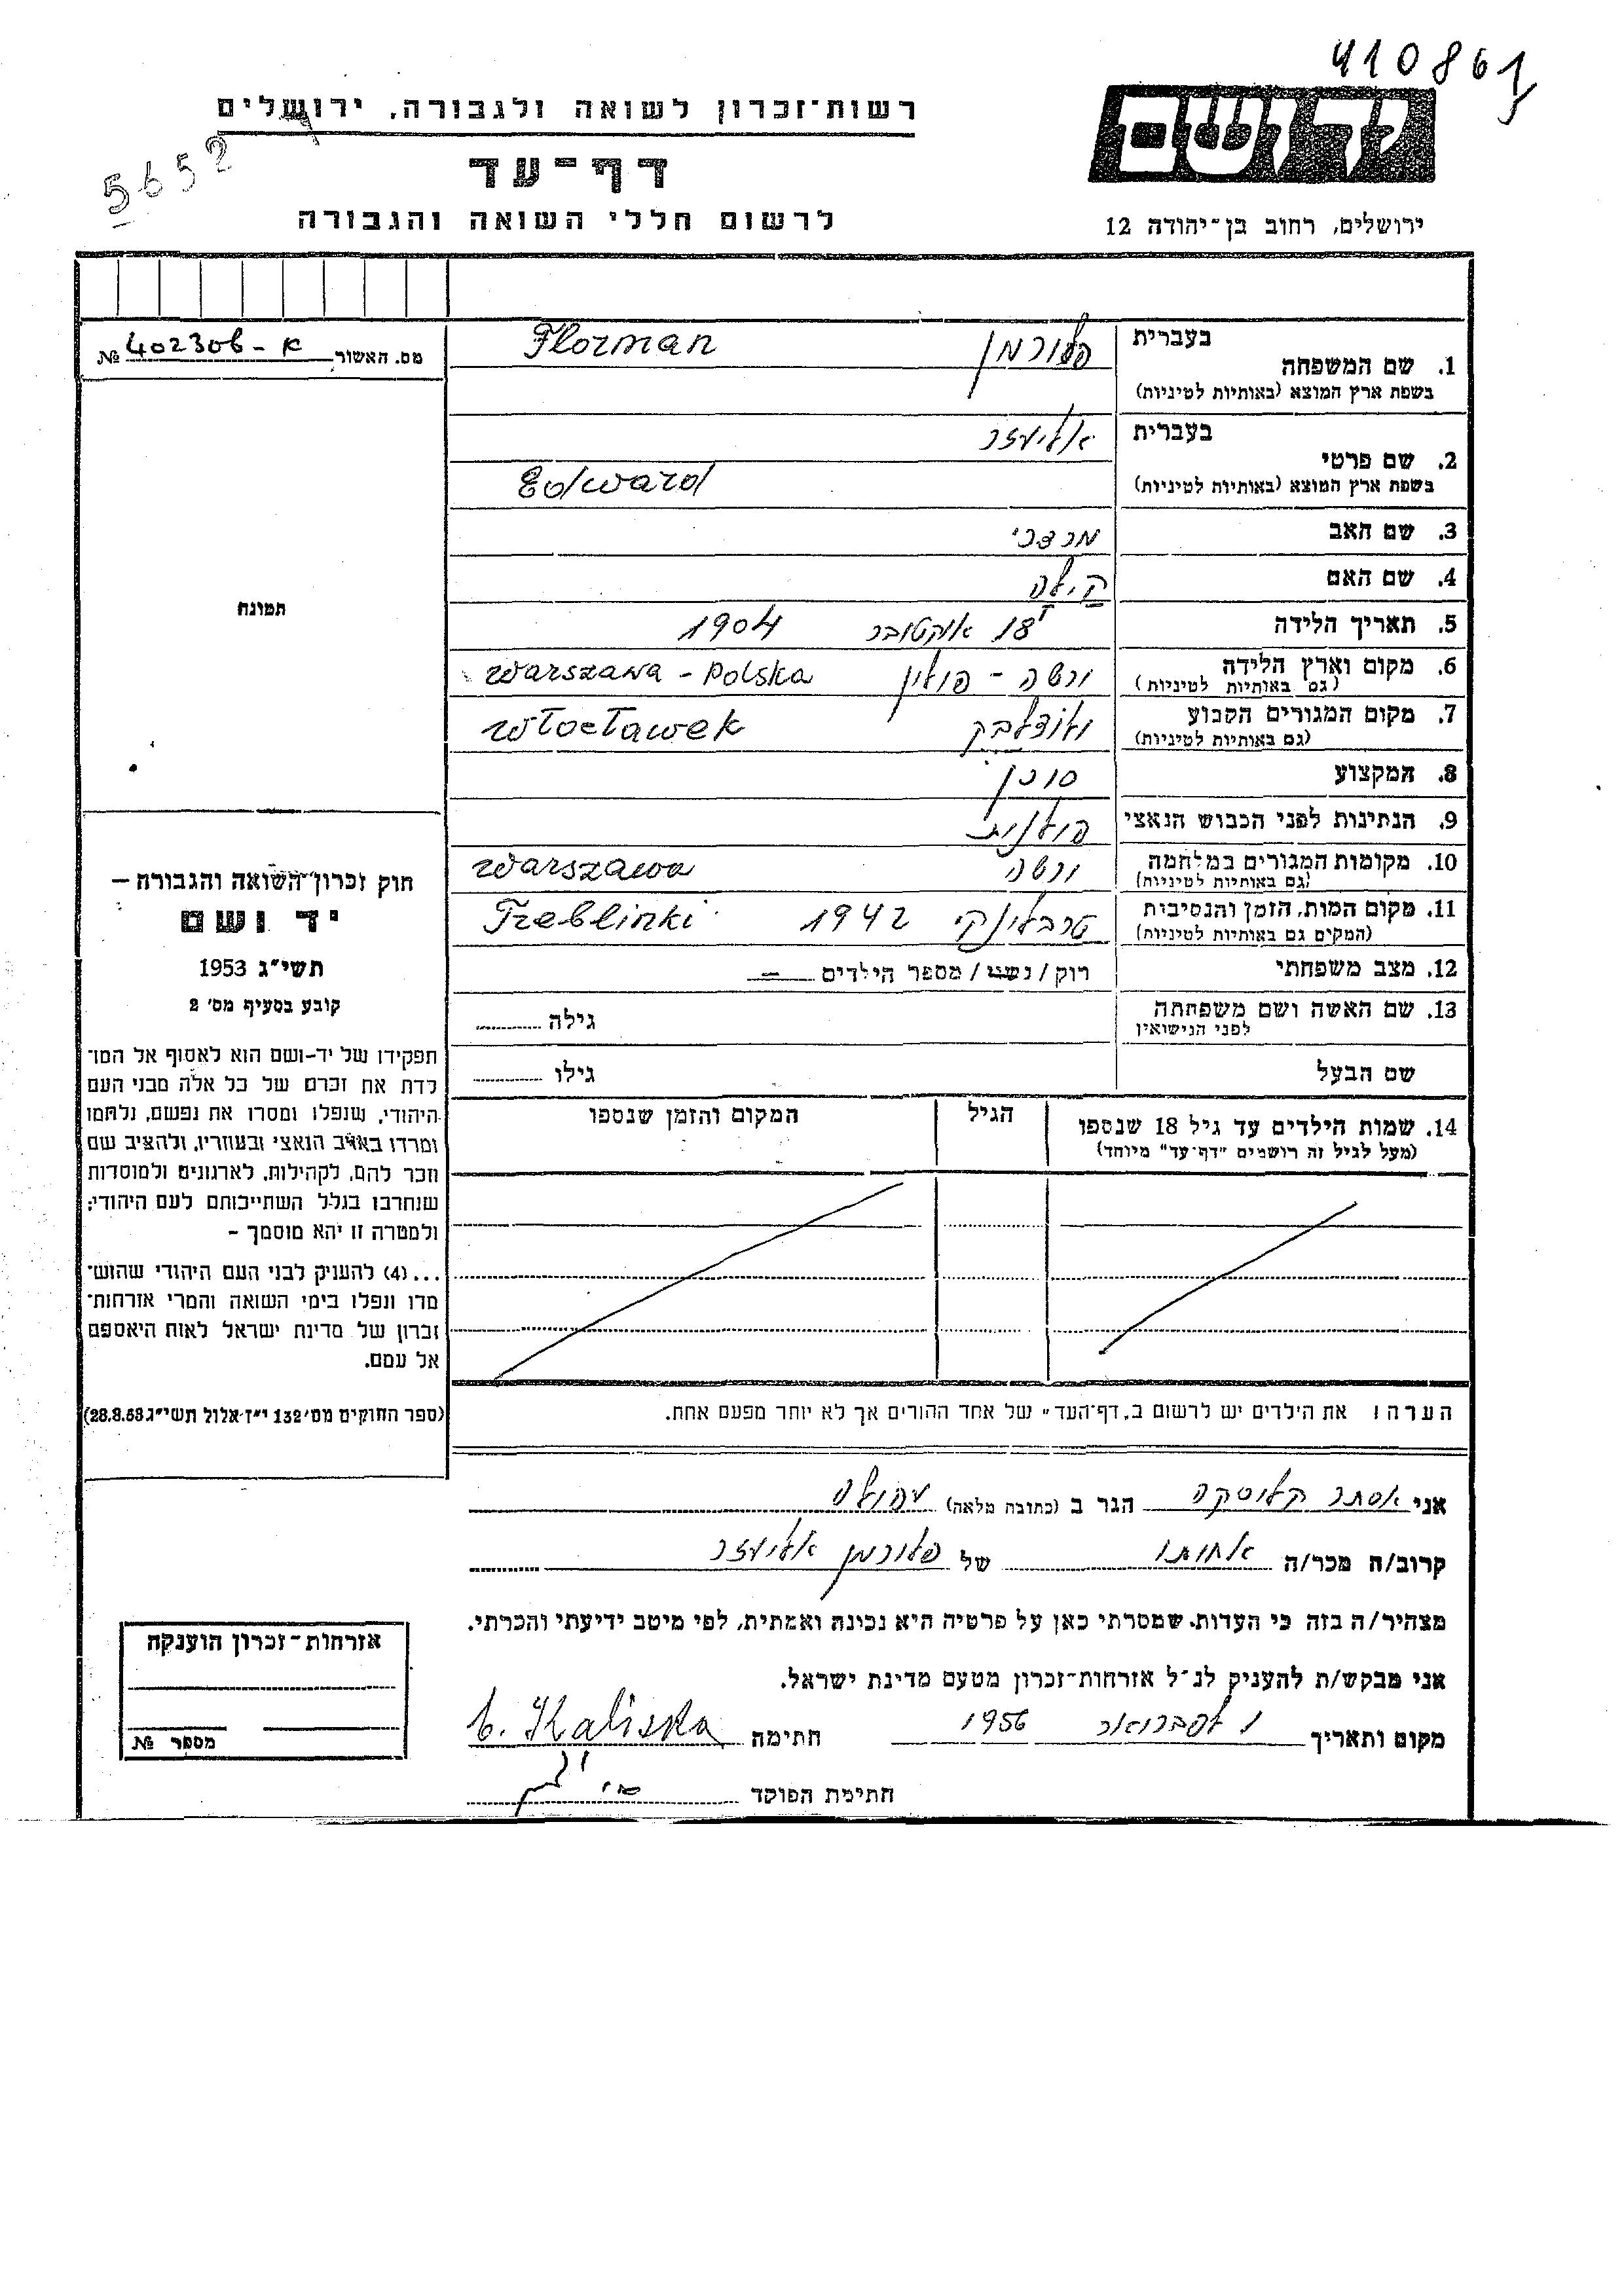 410861
רשות־זכרון לשואה ולגבורה, ירושלים
5652
דף־עד
לרשום חללי השואה והגבורה
יד ושם
ירושלים, רחוב בן־יהודה 12
מס. האשור 402306 - א №
תמונה
חוק זכרון־השואה והגבורה —
יד ושם
תשי״ג 1953
קובע בסעיף מס׳ 2
תפקידו של יד-ושם הוא לאסוף אל המו־
לדת את זכרם של כל אלה מבני העם
היהודי, שנפלו ומסרו את נפשם, נלחמו
ומרדו באויב הנאצי ובעוזריו, ולהציב שם
וזכר להם, לקהילות, לארגונים ולמוסדות
שנחרבו בגלל השתייכותם לעם היהודי;
ולמטרה זו יהא מוסמך –
...(4) להעניק לבני העם היהודי שהוש־
מדו ונפלו בימי השואה והמרי אזרחות־
זכרון של מדינת ישראל לאות היאספם
אל עמם.
(ספר החוקים מס׳ 132 י״ז אלול תשי״ג 28.8.53)
בעברית פלורמן Florman
1. שם המשפחה
בשפת ארץ המוצא (באותיות לטיניות)
בעברית אליעזר
2. שם פרטי
בשפת ארץ המוצא (באותיות לטיניות) Edward
3. שם האב מרדכי
4. שם האם קילה
5. תאריך הלידה 18 אוקטובר 1904
6. מקום וארץ הלידה ורשה - פולין Warszawa - Polska
(גם באותיות לטיניות)
7. מקום המגורים הקבוע ולוצלבק Włocławek
(גם באותיות לטיניות)
8. המקצוע סוכן
9. הנתינות לפני הכבוש הנאצי פולנית
10. מקומות המגורים במלחמה ורשה Warszawa
(גם באותיות לטיניות)
11. מקום המות, הזמן והנסיבית טרבלינקי 1942 Treblinki
(המקים גם באותיות לטיניות)
12. מצב משפחתי רוק/נשוי/מספר הילדים —
13. שם האשה ושם משפחתה גילה
לפני הנישואין
שם הבעל גילו
14. שמות הילדים עד גיל 18 שנספו הגיל המקום והזמן שנספו
(מעל לגיל זה רושמים "דף־עד" מיוחד)
הערה: את הילדים יש לרשום ב„דף־העד״ של אחד ההורים אך לא יותר מפעם אחת.
אני אסתר קליסקה הגר ב (כתובה מלאה) עפולה
קרוב/ה מכר/ה אחותו של פלורמן אליעזר
מצהיר/ה בזה כי העדות שמסרתי כאן על פרטיה היא נכונה ואמתית, לפי מיטב ידיעתי והכרתי.
אני מבקש/ת להעניק לנ״ל אזרחות־זכרון מטעם מדינת ישראל.
מקום ותאריך 1 לפברואר 1956 חתימה E. Kaliska
חתימת הפוקד
אזרחות־זכרון הוענקה
מספר №